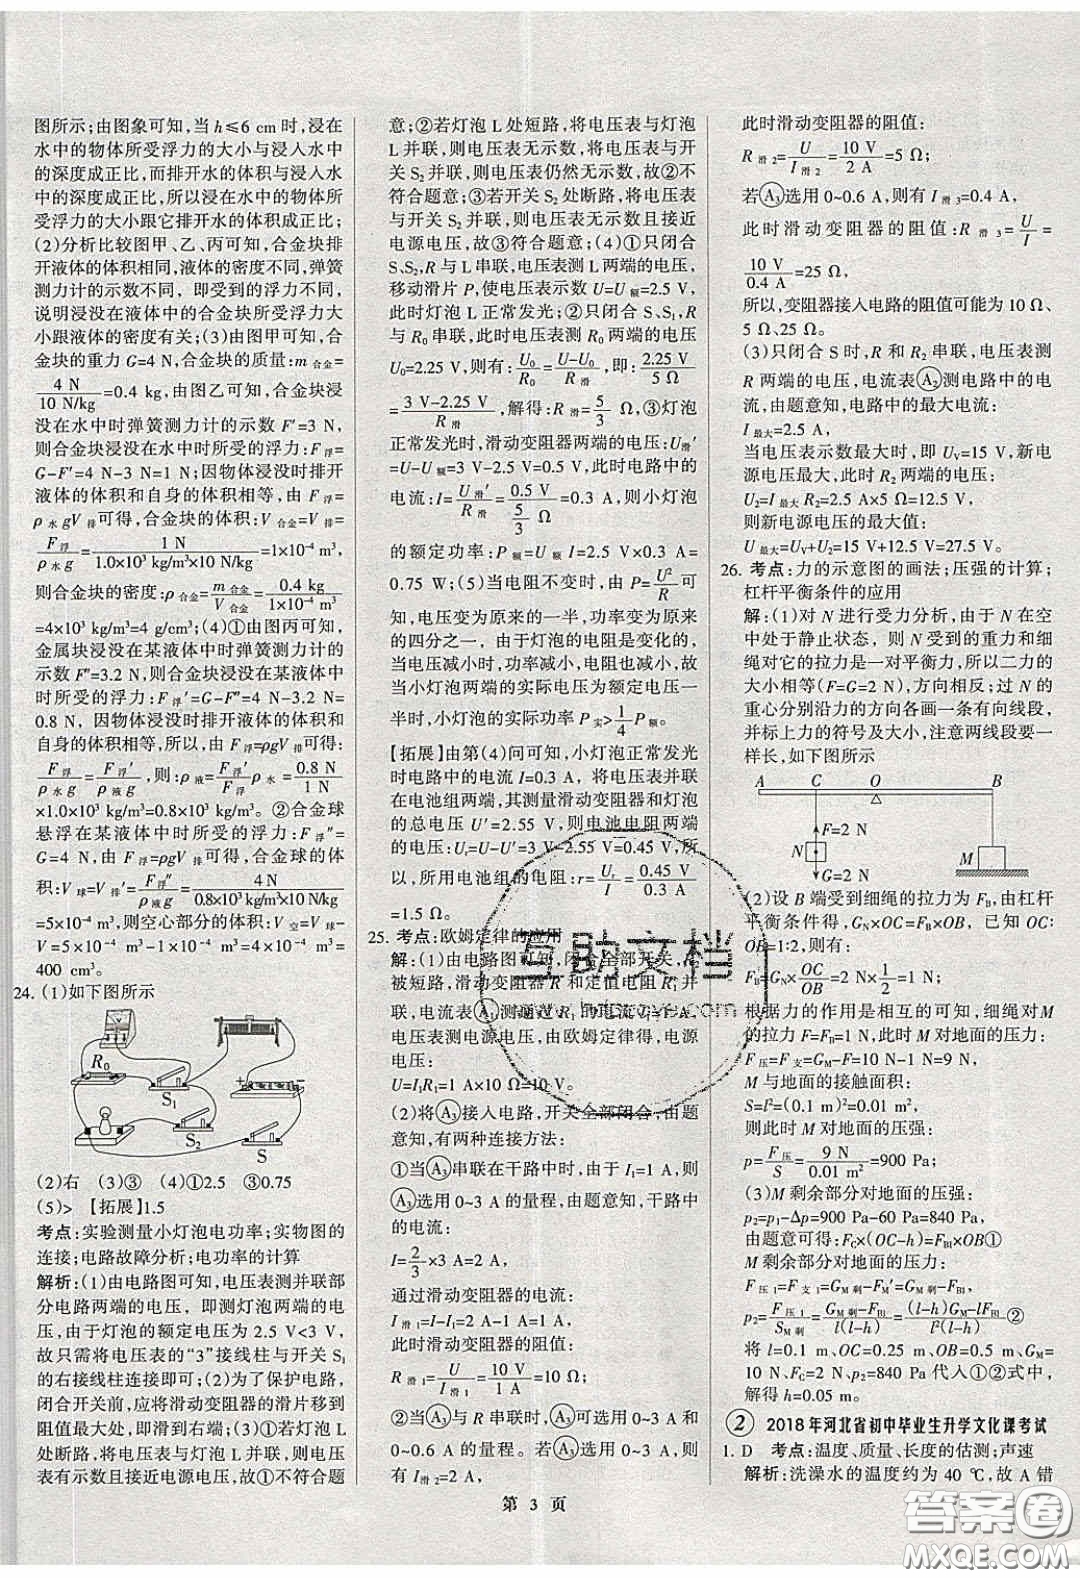 图所示;由图象可知,当 h≤6 cm 时,浸在
水中的物体所受浮力的大小与浸入水中
的深度成正比,而排开水的体积与浸入水
中的深度成正比,所以浸在水中的物体所
受浮力的大小跟它排开水的体积成正比;
(2)分析比较图甲、乙、丙可知,合金块排
开液体的体积相同,液体的密度不同,弹簧
测力计的示数不同,即受到的浮力不同,
说明浸没在液体中的合金块所受浮力大
小跟液体的密度有关;(3)由图甲可知,合
金块的重力 G=4 N,合金块的质量:m合金=
4 N/10 N/kg=0.4 kg,由图乙可知,合金块浸
没在水中时弹簧测力计的示数 F′=3 N,
则合金块浸没在水中时所受的浮力:F浮=
G-F′=4 N-3 N=1 N;因物体浸没时排开
液体的体积和自身的体积相等,由 F浮=
ρ水gV排可得,合金块的体积:V合金=V排=
F浮/ρ水g=1 N/1.0×10³ kg/m³×10 N/kg=1×10⁻⁴ m³,
则合金块的密度:ρ合金=m合金/V合金=0.4 kg/1×10⁻⁴ m³
=4×10³ kg/m³=4 g/cm³;(4)①由图丙可知,
金属块浸没在某液体中时弹簧测力计的
示数 F″=3.2 N,则合金块浸没在某液体中
时所受的浮力:F浮′=G-F″=4 N-3.2 N=
0.8 N,因物体浸没时排开液体的体积和
自身的体积相等,所以,由 F浮=ρgV排可得:
F浮/ρ水g=F浮′/ρ液g,则:ρ液=F浮′/F浮 ρ水=0.8 N/1 N
×1.0×10³ kg/m³=0.8×10³ kg/m³。②合金球
悬浮在某液体中时所受的浮力:F浮″=
G=4 N,由 F浮=ρgV排可得,合金球的体
积:V球=V排′=F浮″/ρ液g=4 N/0.8×10³ kg/m³×10 N/kg
=5×10⁻⁴ m³,则空心部分的体积:V空=V球-
V合金=5×10⁻⁴ m³-1×10⁻⁴ m³=4×10⁻⁴ m³=
400 cm³。
24. (1)如下图所示
R₀
S₁
S₂
S
(2)右 (3)③ (4)①2.5 ③0.75
(5)> 【拓展】1.5
考点:实验测量小灯泡电功率;实物图的
连接;电路故障分析;电功率的计算
解析:(1)由电路图可知,电压表测并联部
分电路两端的电压,即测灯泡两端的电
压,由于灯泡的额定电压为 2.5 V<3 V,
故只需将电压表的“3”接线柱与开关 S₁
的右接线柱连接即可;(2)为了保护电路,
闭合开关前,应将滑动变阻器的滑片移到
阻值最大处,即右端;(3)①若灯泡 L
处断路,将电压表与灯泡 L 并联,则电压
表有示数且接近电源电压,故①不符合题
意;②若灯泡 L 处短路,将电压表与灯泡
L 并联,则电压表无示数,将电压表与开
关 S₁ 并联,则电压表仍然无示数,故②不
符合题意;③若开关 S₂ 处断路,将电压表
与开关 S₂ 并联,则电压表无示数且接近
电源电压,故③符合题意;(4)①只闭合
S、S₂,R 与 L 串联,电压表测 L 两端的电压,
移动滑片 P,使电压表示数 U=U额=2.5 V,
此时灯泡 L 正常发光;②只闭合 S、S₁,R
与 R₀ 串联,此时电压表测 R₀ 两端的电压
U₀=2.25 V,则有:U₀/R₀=U-U₀/R滑,即:2.25 V/5 Ω
=3 V-2.25 V/R滑,解得:R滑=5/3 Ω,③灯泡
正常发光时,滑动变阻器两端的电压:U滑′
=U-U额=3 V-2.5 V=0.5 V,此时电路中的
电流:I=U滑′/R滑=0.5 V/5/3 Ω=0.3 A,则小灯泡
的额定功率:P额=U额I=2.5 V×0.3 A=
0.75 W;(5)当电阻不变时,由 P=U²/R可
知,电压变为原来的一半,功率变为原来
的四分之一,由于灯泡的电阻是变化的,
当电压减小时,功率减小,电阻也减小,故
当小灯泡两端的实际电压为额定电压一
半时,小灯泡的实际功率 P实>1/4 P额。
【拓展】由第(4)问可知,小灯泡正常发光
时电路中的电流 I=0.3 A,将电压表并联
在电池组两端,其测量滑动变阻器和灯泡
的总电压 U′=2.55 V,则电池电阻两端
的电压:Ur=U-U′=3 V-2.55 V=0.45 V,所
以,所用电池组的电阻:r=Ur/I=0.45 V/0.3 A
=1.5 Ω。
25. 考点:欧姆定律的应用
解:(1)由电路图可知,闭合全部开关,R₂
被短路,滑动变阻器 R 和定值电阻 R₁ 并
联,电流表A₁测通过 R₁ 的电流 I₁=1 A,
电压表测电源电压,由欧姆定律得,电源
电压:
U=I₁R₁=1 A×10 Ω=10 V。
(2)将 A₃ 接入电路,开关全部闭合,由题
意知,有两种连接方法:
①当A₃串联在干路中时,由于 I₁=1 A,则
A₃选用 0~3 A 的量程,由题意知,干路中
的电流:
I=2/3×3 A=2 A;
通过滑动变阻器的电流:
I滑1=I-I₁=2 A-1 A=1 A;
此时滑动变阻器的阻值:
R滑1=U/I滑1=10 V/1 A=10 Ω;
②当A₃与 R 串联时,A₃选用两个量程都
可以,若A₃选用 0~3 A,则有 I滑2=2 A,
此时滑动变阻器的阻值:
R滑2=U/I滑2=10 V/2 A=5 Ω;
若A₃选用 0~0.6 A,则有 I滑3=0.4 A,
此时滑动变阻器的阻值:R滑3=U/I=
10 V/0.4 A=25 Ω;
所以,变阻器接入电路的阻值可能为 10 Ω、
5 Ω、25 Ω。
(3)只闭合 S 时,R 和 R₂ 串联,电压表测
R 两端的电压,电流表A₂测电路中的电
流,由题意知,电路中的最大电流:
I最大=2.5 A,
当电压表示数最大时,即 UV=15 V,新电
源电压最大,此时 R₂ 两端的电压:
U₂=I最大R₂=2.5 A×5 Ω=12.5 V,
则新电源电压的最大值:
U最大=UV+U₂=15 V+12.5 V=27.5 V。
26. 考点:力的示意图的画法;压强的计算;
杠杆平衡条件的应用
解:(1)对 N 进行受力分析,由于 N 在空
中处于静止状态,则 N 受到的重力和细
绳对它的拉力是一对平衡力,所以二力的
大小相等(F=G=2 N),方向相反;过 N 的
重心分别沿力的方向各画一条有向线段,
并标上力的符号及大小,注意两线段要一
样长,如下图所示
A C O B
F=2 N
N
M
G=2 N
(2)设 B 端受到细绳的拉力为 FB,由杠杆
平衡条件得,GN×OC=FB×OB,已知 OC:
OB=1:2,则有:
FB=GN×OC/OB=2 N×1/2=1 N;
根据力的作用是相互的可知,细绳对M
的拉力 F=FB=1 N,此时 M 对地面的压力:
F压=F支=GM-F=10 N-1 N=9 N,
M 与地面的接触面积:
S=l²=(0.1 m)²=0.01 m²,
则此时 M 对地面的压强:
p=F压/S=9 N/0.01 m²=900 Pa;
(3)M 剩余部分对地面的压强:
p₂=p₁-Δp=900 Pa-60 Pa=840 Pa,
由题意可得:FC×OC=FB1×OB①
M 剩余部分对地面的压力:
F压1=F支1=GM剩-F′=GM剩-FB1
p₂=F压1/SM剩=GM剩-FB1/l(l-h)=(l-h)GM-lFB1/l²(l-h)②
将 l=0.1 m、OC=0.25 m、OB=0.5 m、GM=
10 N、FC=2 N、p₂=840 Pa 代入①②式中,
解得 h=0.05 m。
② 2018年河北省初中毕业生升学文化课考试
1. D 考点:温度、质量、长度的估测;声速
解析:洗澡水的温度约为 40 ℃,故 A 错
第 3 页
互助文档
答案圈
MXQE.COM